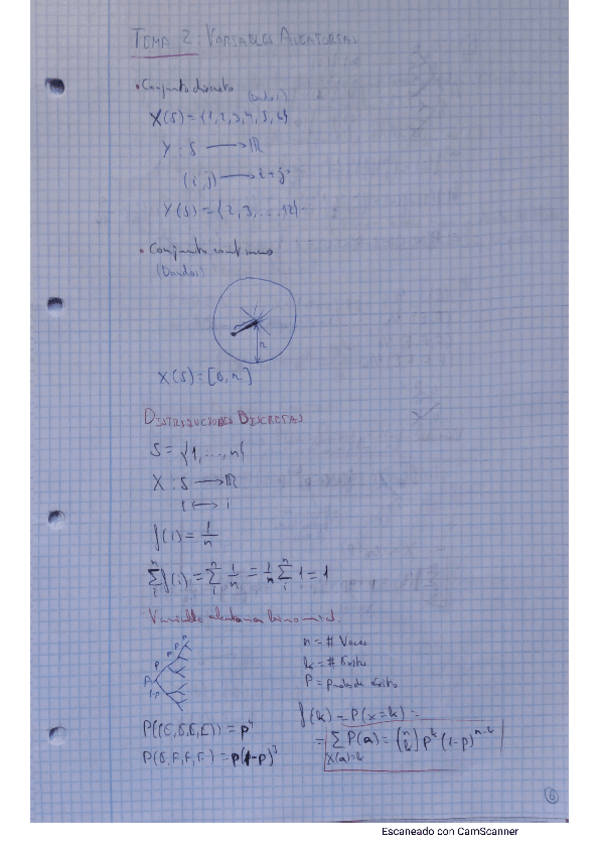 TEMA 2: VARIABLES ALEATORIAS
• Conjunto discreto
(Dados)
X(S) = {1,2,3,4,5,6}
Y : S → ℝ
(i,j) → i+j
Y(S) = {2,3,...,12}
• Conjunto continuo
(Dardos)
r
X(S) = [0,r]
DISTRIBUCIONES DISCRETAS
S = {1,...,n}
X : S → ℝ
i ↔ i
f(i) = 1/n
∑ᵢⁿ f(i) = ∑ᵢⁿ 1/n = 1/n ∑ᵢⁿ 1 = 1
Variable aleatoria binomial.
n = # Veces
k = # Éxitos
P = prob de éxito
A P P P P
1-P
f(k) = P(x=k) =
P((E,E,E,E)) = p⁴
= ∑ P(a) = (n k) pᵏ (1-p)ⁿ⁻ᵏ
X(a)=k
P(E,F,F,F) = p(1-p)³
6
Escaneado con CamScanner